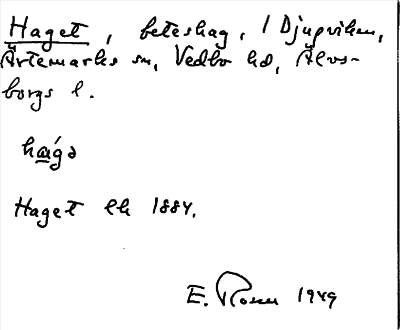 Haget, beteshag, 1 Djupviken,
Ärtemarks sn, Vedbo hd, Älvs-
borgs l.
haga
Haget lk 1884.
E. Rosen 1949